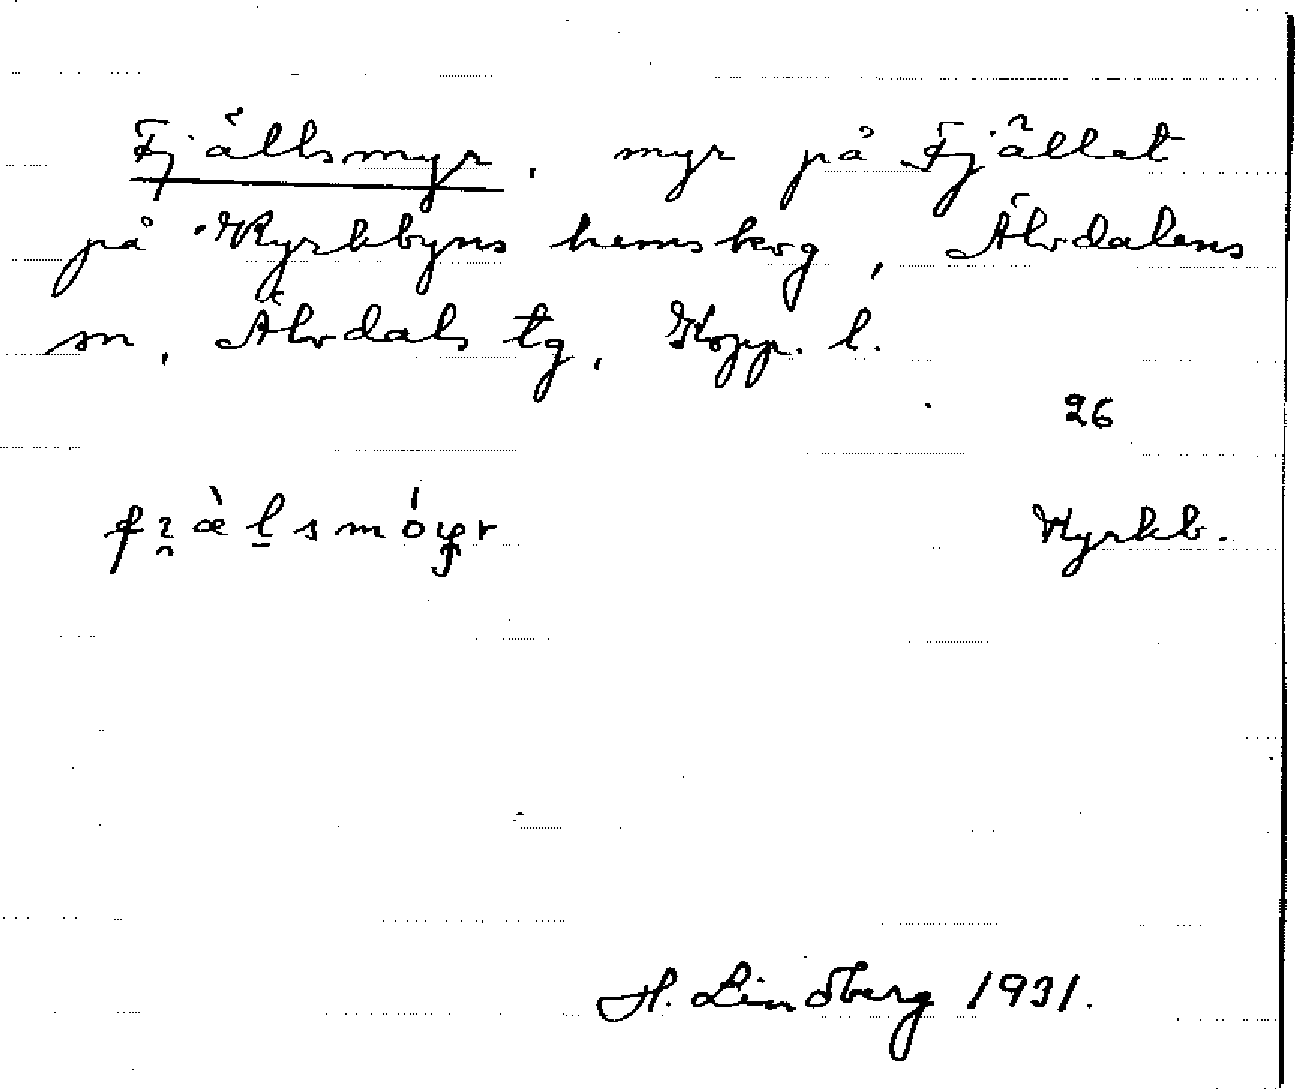 Fjällsmyr, myr på Fjället
på Kyrkbyns hemskog, Älvdalens
sn, Älvdals tg, Kopp. l.
26
Kyrkb.
H. Lindberg 1931.